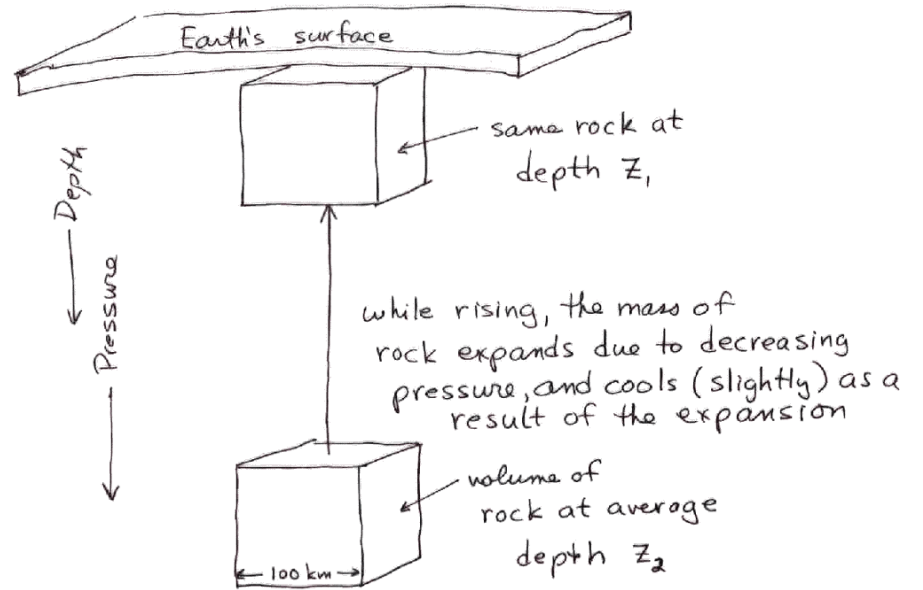 Earth's surface
same rock at
depth Z₁
Depth
Pressure
while rising, the mass of
rock expands due to decreasing
pressure, and cools (slightly) as a
result of the expansion
volume of
rock at average
depth Z₂
100 km